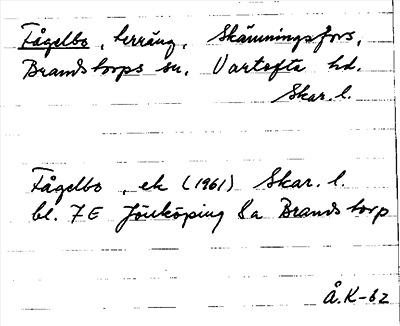 Fågelbo, terräng, Skämningsfors,
Brandstorps sn. Vartofta hd.
Skar. l.
Fågelbo, ek (1961) Skar. l.
bl. 7E Jönköping 8a Brandstorp
Å.K-62